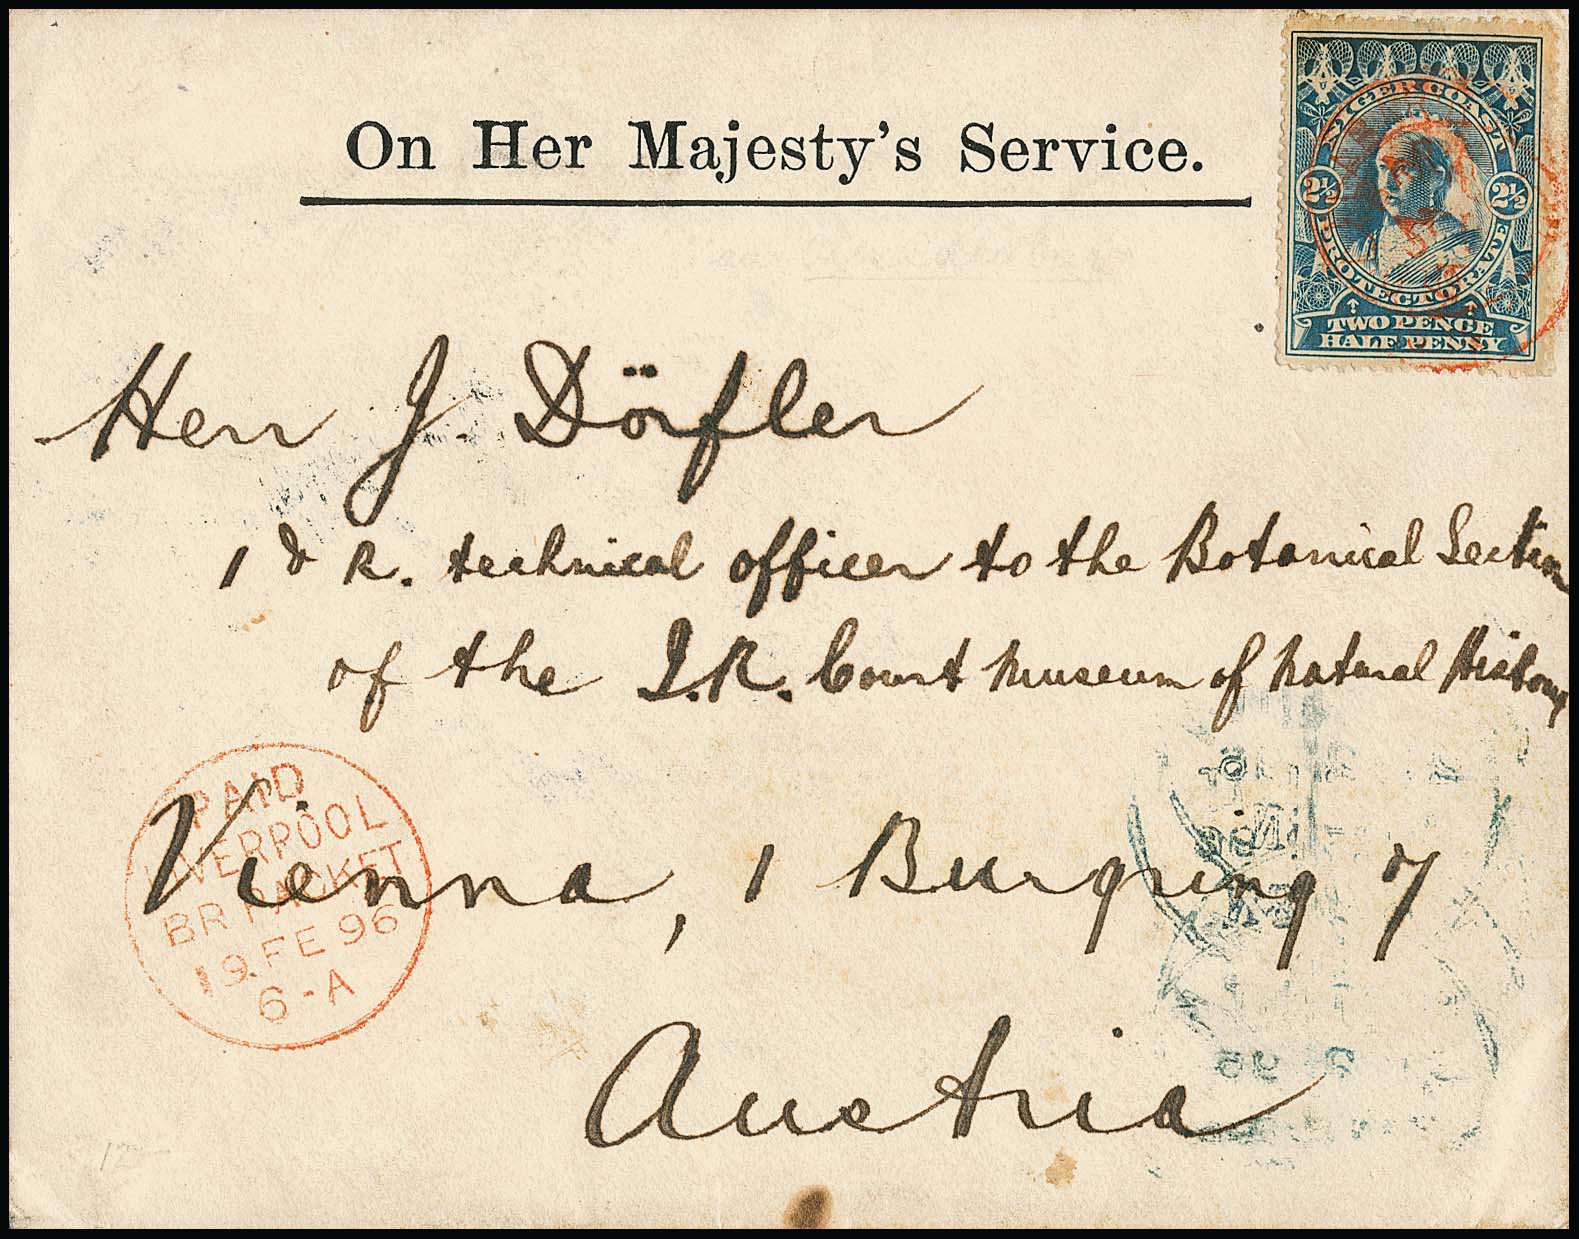 On Her Majesty's Service.
NIGER COAST
2½ 2½
PROTECTORATE
TWO PENCE
HALF PENNY
Herr J. Dörfler
1 & R. technical officer to the Botanical Section
of the I.R. Court Museum of Natural History
Vienna, 1 Burgring 7
Austria
PAID
LIVERPOOL
BR PACKET
19 FE 96
6-A